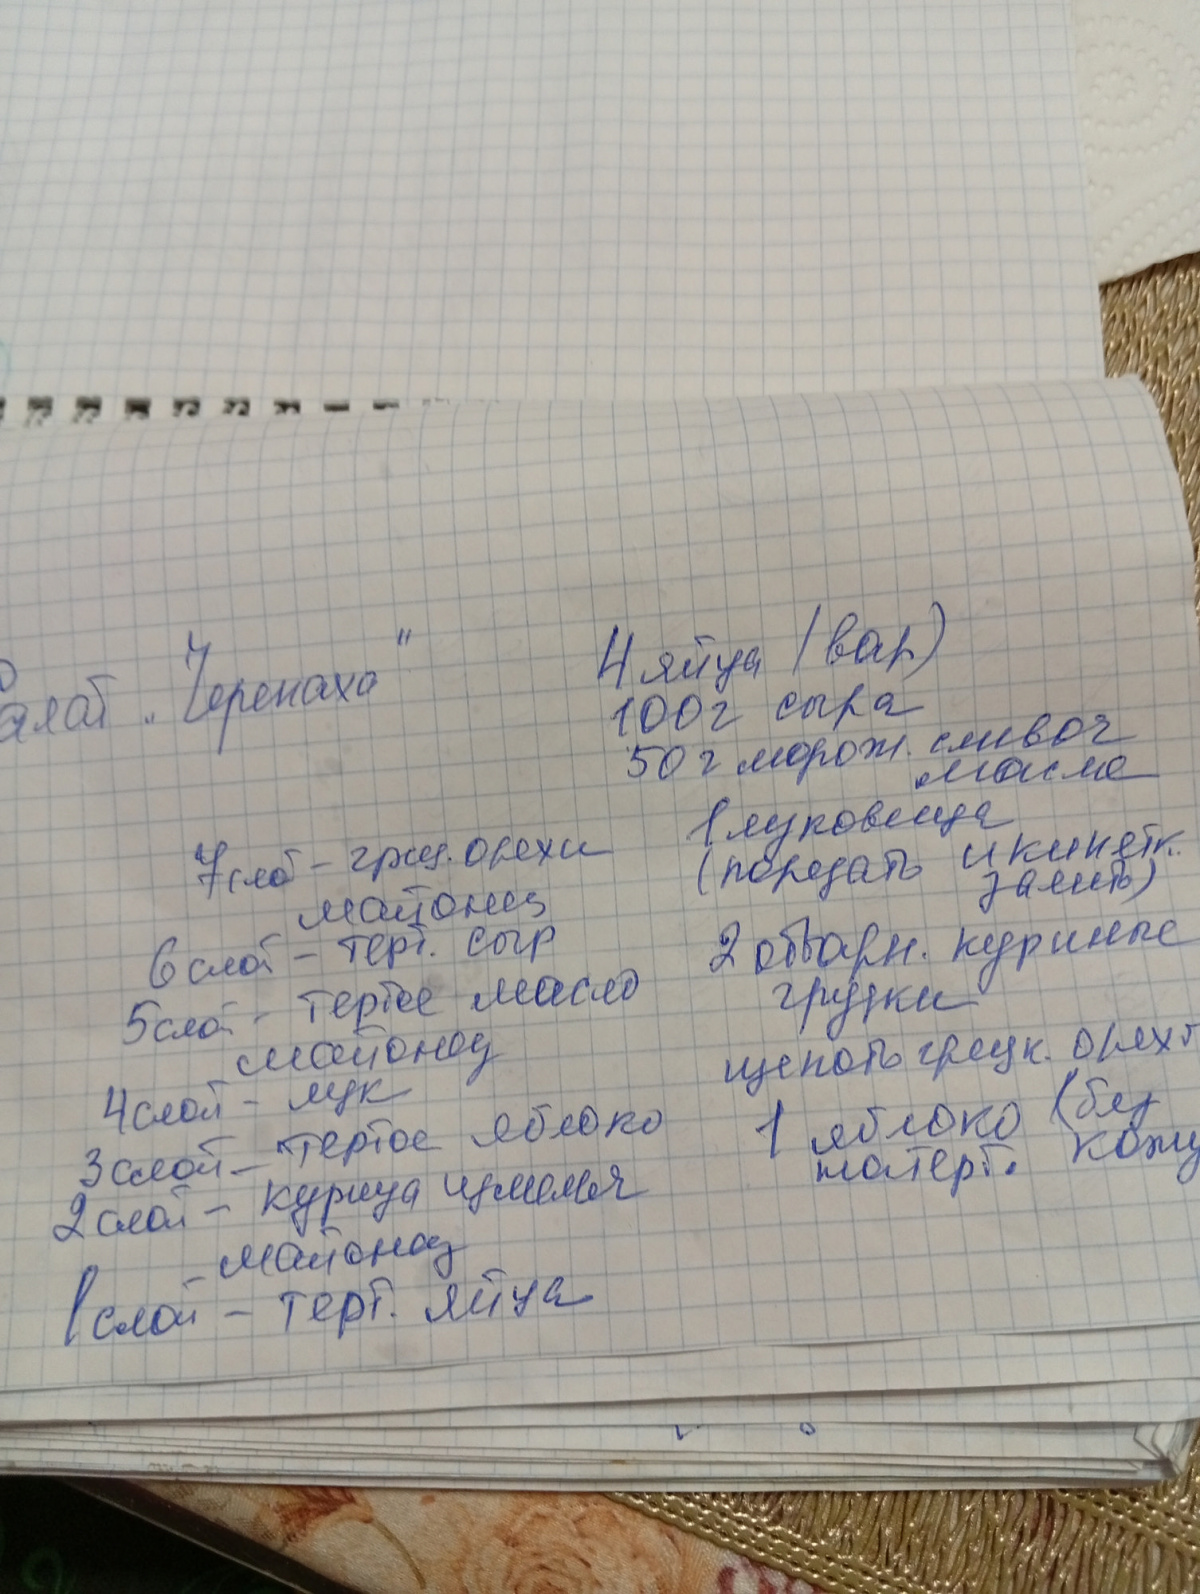 Салат „Черепаха"
4 яйца (вар)
100г сыра
50 г морож. сливоч
масла
1 луковица
(порезать и кипятк.
залить)
2 отварн. куриные
грудки
щепоть грецк. орехо
1 яблоко (без
натерт. кожу
7 слой - грец. орехи
майонез
6 слой - терт. сыр
5 слой - тертое масло
майонез
4 слой - лук
3 слой - тертое яблоко
2 слой - курица измельч
майонез
1 слой - терт. яйца